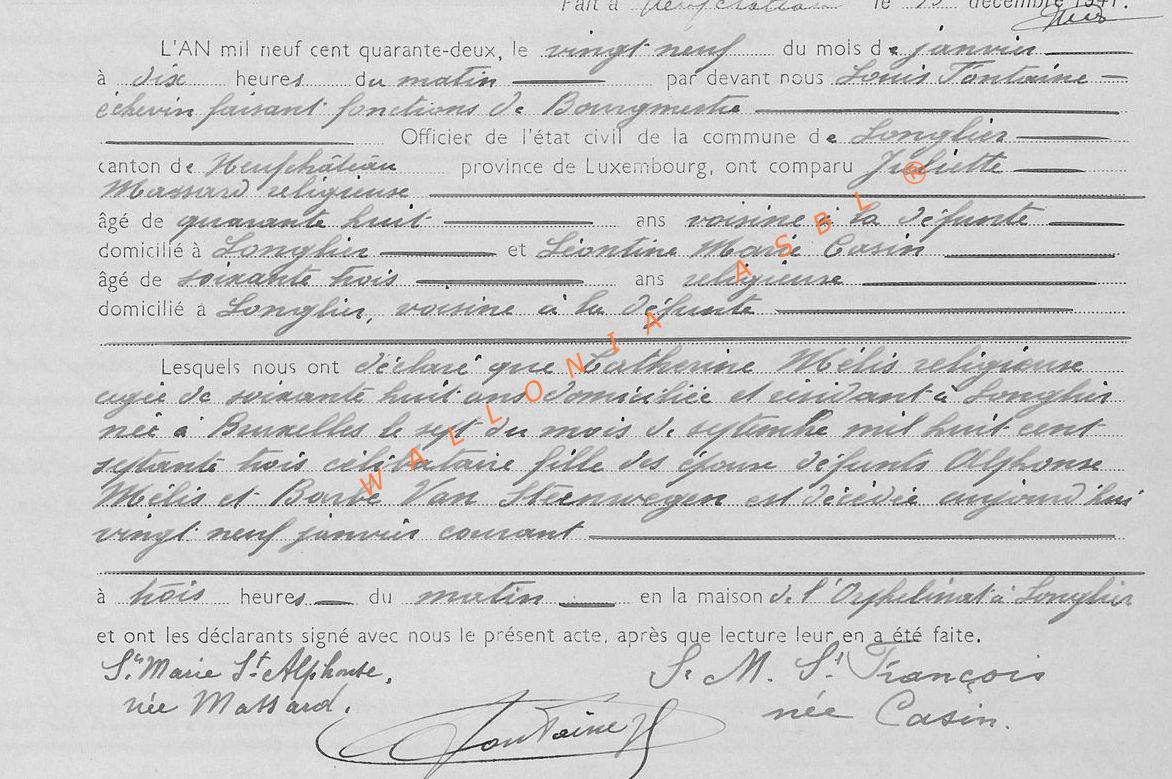 Fait à Neufchâteau le 15 décembre 1941.
L'AN mil neuf cent quarante-deux, le vingt neuf du mois de janvier
à dix heures du matin par devant nous Louis Fontaine
échevin faisant fonctions de Bourgmestre
Officier de l'état civil de la commune de Longlier
canton de Neufchâteau province de Luxembourg, ont comparu Juliette
Massard religieuse
âgé de quarante huit ans voisine à la défunte
domicilié à Longlier et Léontine Marie Casin
âgé de soixante trois ans religieuse
domicilié à Longlier, voisine à la défunte
Lesquels nous ont déclaré que Catherine Mélis religieuse
agée de soixante huit ans domiciliée et résidant à Longlier
née à Bruxelles le sept du mois de septembre mil huit cent
septante trois célibataire fille des époux défunts Alphonse
Mélis et Barbe Van Steenwegen est décédée aujourd'hui
vingt neuf janvier courant
à trois heures du matin en la maison de l'Orphelinat à Longlier
et ont les déclarants signé avec nous le présent acte, après que lecture leur en a été faite.
Sr Marie St Alphonse.
née Massard.
S. M. St François
née Casin.
Fontaine
WALLONIA ASBL ®